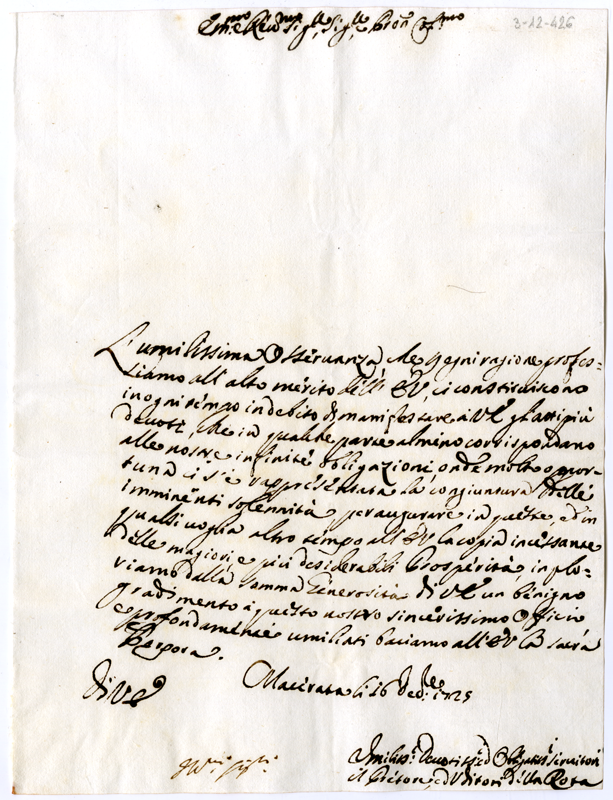 Em.mo e Rev.mo Sig.re Sig.re e Pron Col.mo
3-12-426
L'umilissima Osseruanza, che p ogni ragione profes=
siamo all'alto merito dell'EV, ci constituiscono
in ogni tempo in debito di manifestare à VE gl'atti più
deuoti, che in qualche parte almeno corrispondano
alle nostre infinite obligazioni, onde molto oppor=
tuna ci si è rappresentata la congiuntura delle
imminenti solennità per augurare in queste, ed in
qualsiuoglia altro tempo all'EV la copia incessante
delle magiori, e più desiderabili Prosperità, implo=
riamo dalla somma Generosità di VE un benigno
gradimento à questo nostro sincerissimo Officio
e profondamente umiliati baciamo all'EV la sacra
Porpora.
Di VE
Macerata li 16 Xbre 1725
Umilissi: Deuotissi: ed Obligatissi: seruitori
il Pretore, ed Uditori della Rota